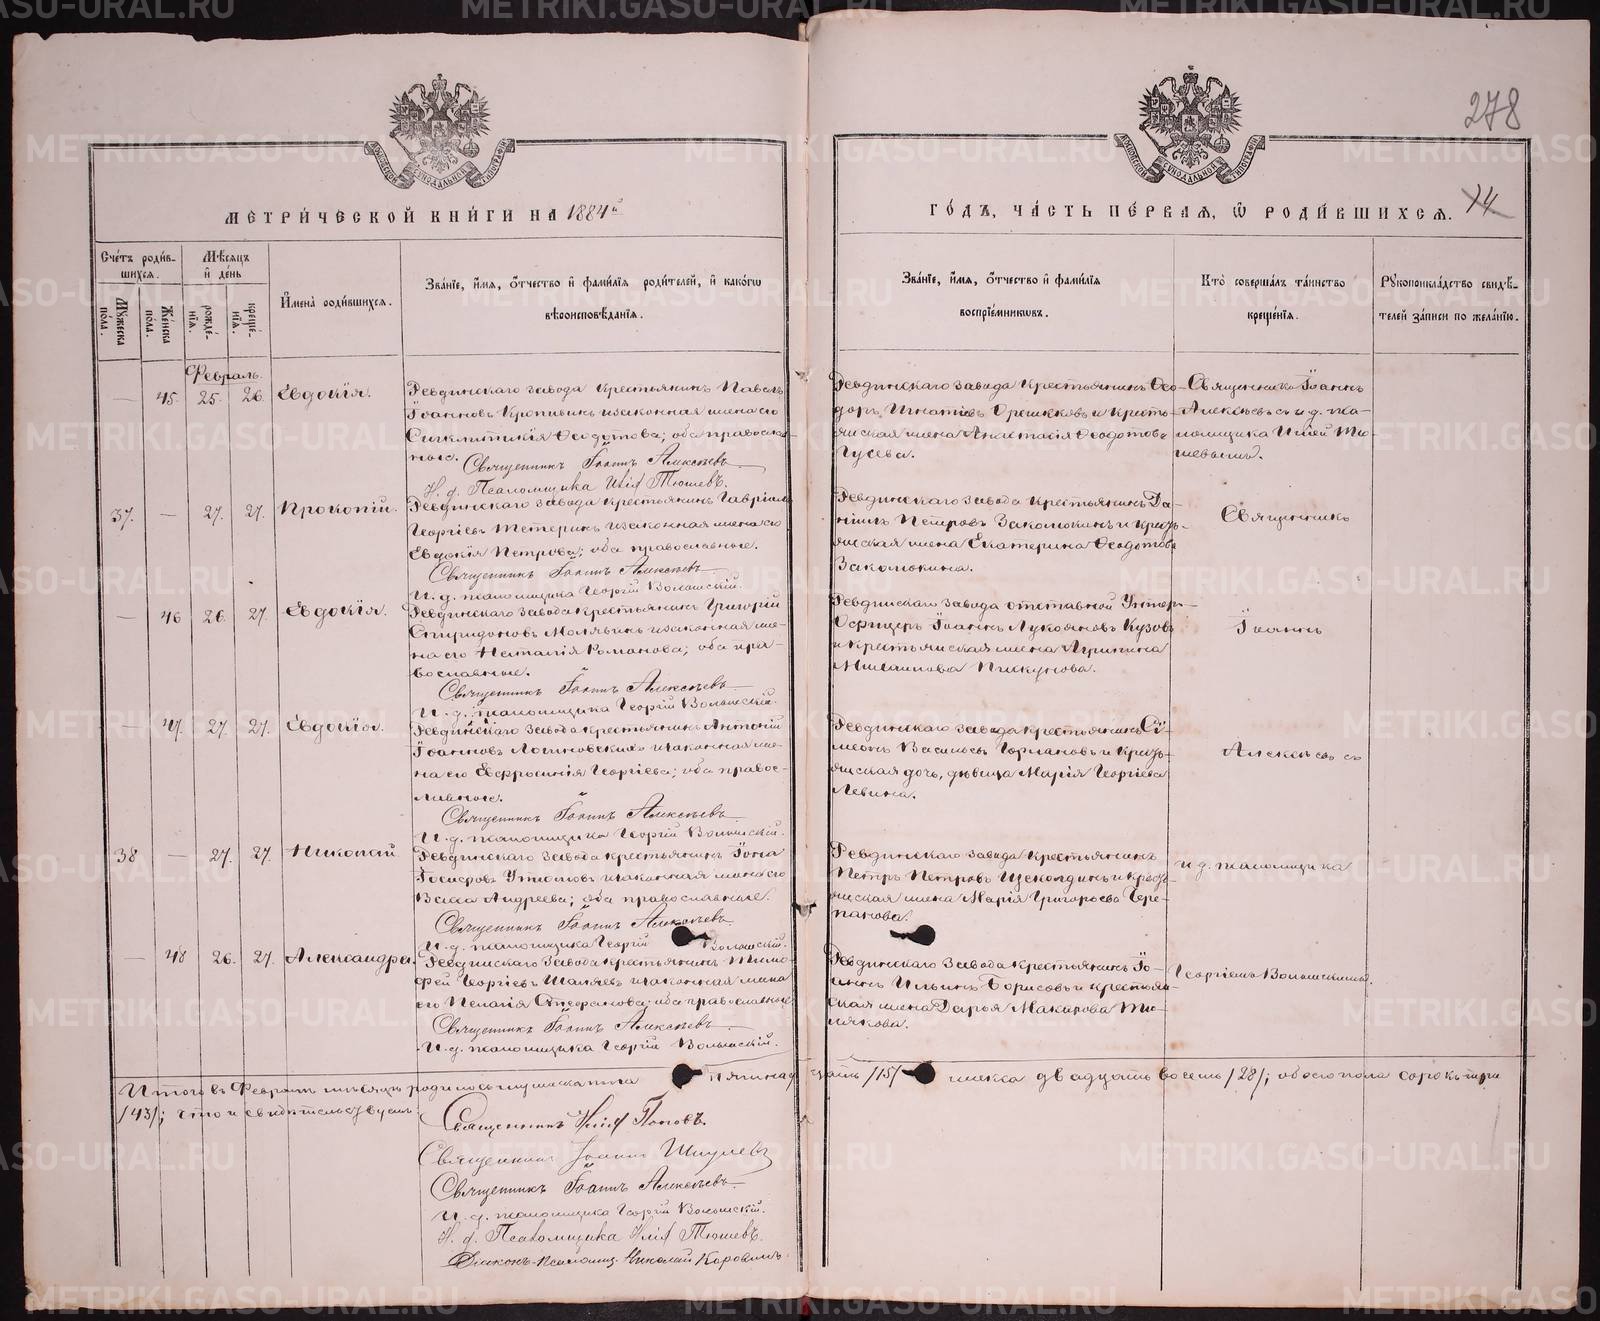 278
МЕТРИЧЕСКОЙ КНИГИ НА 1884й
ГОДЪ, ЧАСТЬ ПЕРВАЯ, Ѡ РОДИВШИХСЯ. 14
Счетъ родив-
шихся.
Мужеска пола.
Женска пола.
Мѣсяцъ
и день
рожде-
нія.
креще-
нія.
Имена родившихся.
Званіе, имя, отчество и фамилія родителей, и какогѡ
вѣроисповѣданія.
Званіе, имя, отчество и фамилія
воспріемниковъ.
Кто совершалъ таинство
крещенія.
Рукоприкладство свидѣ-
телей записи по желанію.
Февраль.
— 45. 25. 26. Евдокія.
Ревдинскаго завода крестьянинъ Павелъ
Іоанновъ и законная жена его
Ѳеодотова; оба православ-
ные. Священникъ Іоаннъ Алексѣевъ
И. д. Псаломщика Илія Тюшевъ.
Ревдинскаго завода Крестьянинъ Ѳео-
доръ Игнатіевъ Орешковъ и Кресть-
янская жена Анастасія Ѳеодотова
Гусева.
Священникъ Іоаннъ
Алексѣевъ съ и. д. пса-
ломщика Иліей Тю-
шевымъ.
37. — 27. 27. Прокопій.
Ревдинскаго завода крестьянинъ Гавріилъ
Георгіевъ Тетеринъ и законная жена его
Евдокія Петрова; оба православные.
Священникъ Іоаннъ Алексѣевъ
И. д. псаломщика Георгій Волынскій.
Ревдинскаго завода крестьянинъ Да-
ніилъ Петровъ и кресть-
янская жена Екатерина Ѳеодотова
Священникъ
— 46 26. 27. Евдокія.
Ревдинскаго завода крестьянинъ Григорій
Спиридоновъ Молявинъ и законная же-
на его Наталія Романова; оба пра-
вославные.
Священникъ Іоаннъ Алексѣевъ
И. д. псаломщика Георгій Волынскій.
Ревдинскаго завода отставной Унтеръ-
Офицеръ Іоаннъ Лукояновъ
и крестьянская жена
Пискунова.
Іоаннъ
— 47. 27. 27. Евдокія.
Ревдинскаго завода крестьянинъ Антоній
Іоанновъ Логиновскихъ и законная же-
на его Евфросинія Георгіева; оба правос-
лавные.
Священникъ Іоаннъ Алексѣевъ
И. д. псаломщика Георгій Волынскій.
Ревдинскаго завода крестьянинъ Сѵ-
меонъ и кресть-
янская дочь, дѣвица Марія Георгіева
Левина.
Алексѣевъ съ
38 — 27. 27. Николай
Ревдинскаго завода крестьянинъ Іона
и законная жена его
Васса Андреева; оба православные.
Священникъ Іоаннъ Алексѣевъ
И. д. псаломщика Георгій Волынскій.
Ревдинскаго завода крестьянинъ
Петръ Петровъ Щеколдинъ и кресть-
янская жена Марія Григорьева Чере-
панова.
и. д. псаломщика
— 48 26. 27. Александра.
Ревдинскаго завода крестьянинъ Тимо-
фей Георгіевъ и законная жена
его Пелагія Стефанова; оба православные
Священникъ Іоаннъ Алексѣевъ
И. д. псаломщика Георгій Волынскій.
Ревдинскаго завода крестьянинъ Іо-
аннъ Ильинъ Борисовъ и крестьян-
ская жена Дарья Макарова
Георгіемъ Волынскимъ.
Итого въ Февралѣ мѣсяцѣ родилось мужска пола пятнадцать /15/ женска двадцать восемь /28/; обоего пола сорокъ три
/43/; что и свидѣтельствуемъ:
Священникъ Илія Поповъ.
Священникъ Іоаннъ
Священникъ Іоаннъ Алексѣевъ.
И. д. псаломщика Георгій Волынскій.
И. д. Псаломщика Илія Тюшевъ.
Діаконъ-псаломщ. Николай
METRIKI.GASO-URAL.RU